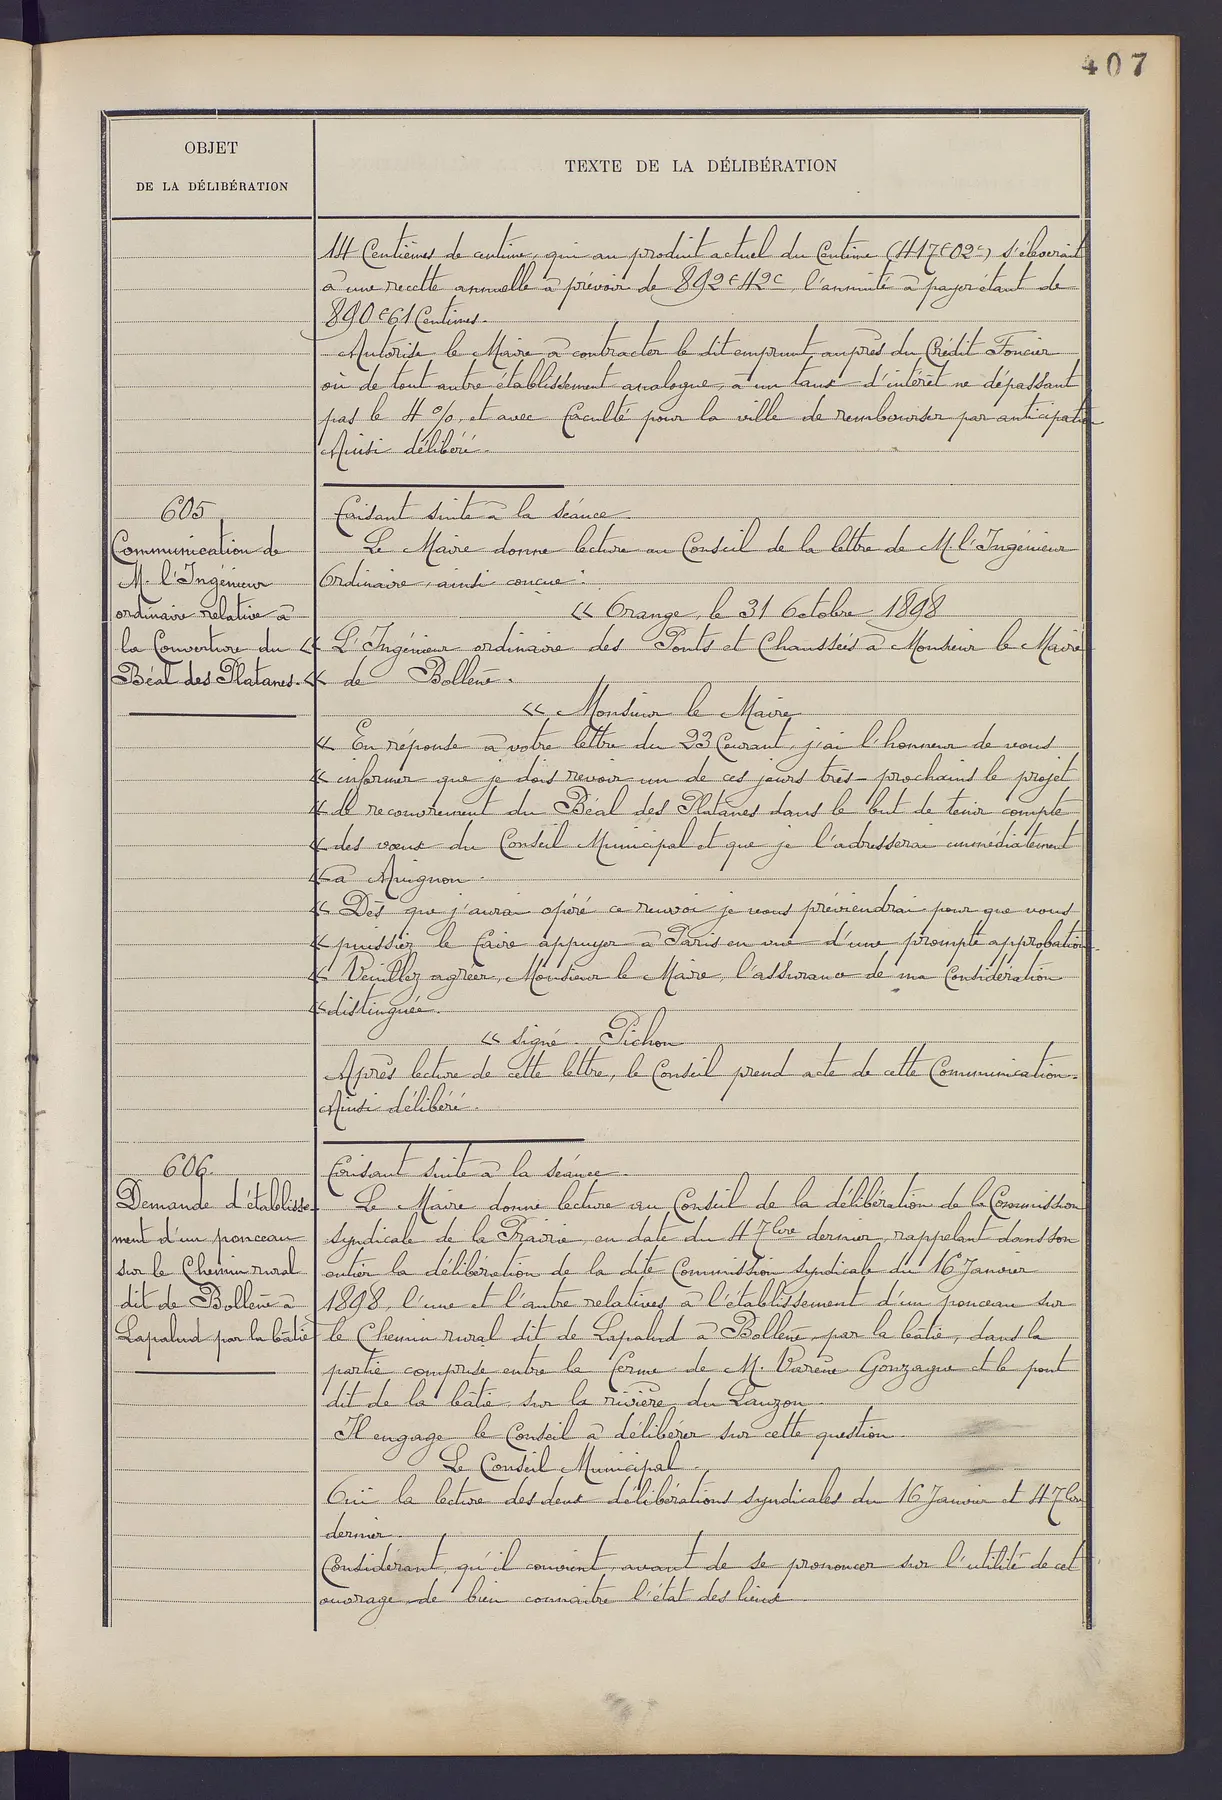 407
OBJET
DE LA DÉLIBÉRATION
TEXTE DE LA DÉLIBÉRATION
14 Centièmes de centime, qui au produit actuel du Centime (417f02c) s'élèverait
à une recette annuelle à prévoir de 892f42c, l'annuité à payer étant de
890f61 Centimes.
Autorise le Maire à contracter le dit emprunt auprès du Crédit Foncier
où de tout autre établissement analogue, à un taux d'intérêt ne dépassant
pas le 4 %, et avec faculté pour la ville de rembourser par anticipation
Ainsi délibéré.
605
Communication de
M. l'Ingénieur
ordinaire relative à
la Couverture du
Béal des Platanes.
Faisant suite à la séance.
Le Maire donne lecture au Conseil de la lettre de M. l'Ingénieur
Ordinaire, ainsi conçue :
« Orange, le 31 Octobre 1898
« L'Ingénieur ordinaire des Ponts et Chaussées à Monsieur le Maire
« de Bollène.
« Monsieur le Maire
« En réponse à votre lettre du 23 Courant, j'ai l'honneur de vous
« informer que je dois revoir un de ces jours très-prochains le projet
« de recouvrement du Béal des Platanes dans le but de tenir compte
« des vœux du Conseil Municipal et que je l'adresserai immédiatement
« à Avignon.
« Dès que j'aurai opéré ce renvoi je vous préviendrai pour que vous
« puissiez le faire appuyer à Paris en vue d'une prompte approbation.
« Veuillez agréer, Monsieur le Maire, l'assurance de ma Considération
« distinguée.
« signé. Pichon
Après lecture de cette lettre, le Conseil prend acte de cette Communication.
Ainsi délibéré.
606.
Demande d'établisse-
ment d'un ponceau
sur le Chemin rural
dit de Bollène à
Lapalud par la bâtie
Faisant suite à la séance.
Le Maire donne lecture au Conseil de la délibération de la Commission
syndicale de la Prairie, en date du 4 7bre dernier, rappelant dans son
entier la délibération de la dite Commission syndicale du 16 Janvier
1898, l'une et l'autre relatives à l'établissement d'un ponceau sur
le Chemin rural dit de Lapalud à Bollène, par la bâtie, dans la
partie comprise entre la ferme de M. Varène Gonzague et le pont
dit de la bâtie, sur la rivière du Lauzon.
Il engage le Conseil à délibérer sur cette question.
Le Conseil Municipal.
Ouï la lecture des deux délibérations syndicales du 16 Janvier et 4 7bre
dernier.
Considérant, qu'il convient, avant de se prononcer sur l'utilité de cet
ouvrage de bien connaitre l'état des lieux.